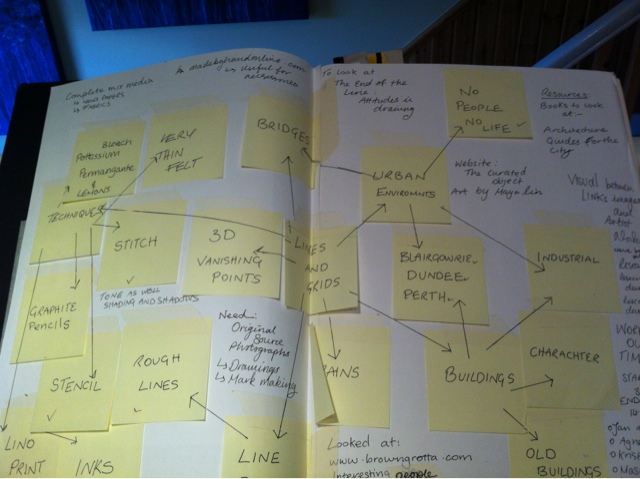 Complete mix media
↳ used papers
↳ FABRICS
↳ madebyhandonline.com
↳ Useful for
accessories
To Look at
The End of the
Line:
Attitudes in
drawing
NO
PEOPLE
NO LIFE ✓
Resources
Books to look
at:-
Architecture
Guides for the
City
Bleach
Potassium
Permanganate
&
LEMONS
VERY
THIN
FELT
BRIDGES
URBAN
ENVIROMNTS
Website:
The curated
object
Art by Maya Lin
Visual between
LINKS
and
Artist
TECHNIQUES
STITCH
✓
TONE AS WELL
SHADING AND SHADOWS
3D
VANISHING
POINTS
LINES
AND
GRIDS
BLAIRGOWRIE
DUNDEE
PERTH
INDUSTRIAL
GRAPHITE
Pencils
Need:
Original
Source
Photographs
↳ Drawings
↳ Mark making
STENCIL
✓
ROUGH
LINES
✓
AINS
BUILDINGS
CHARACHTER
WOR
OU
TIM
STA
END
LINO
PRINT
INKS
LINE
Looked at:
www.browngrotta.com
Interesting people
OLD
BUILDINGS